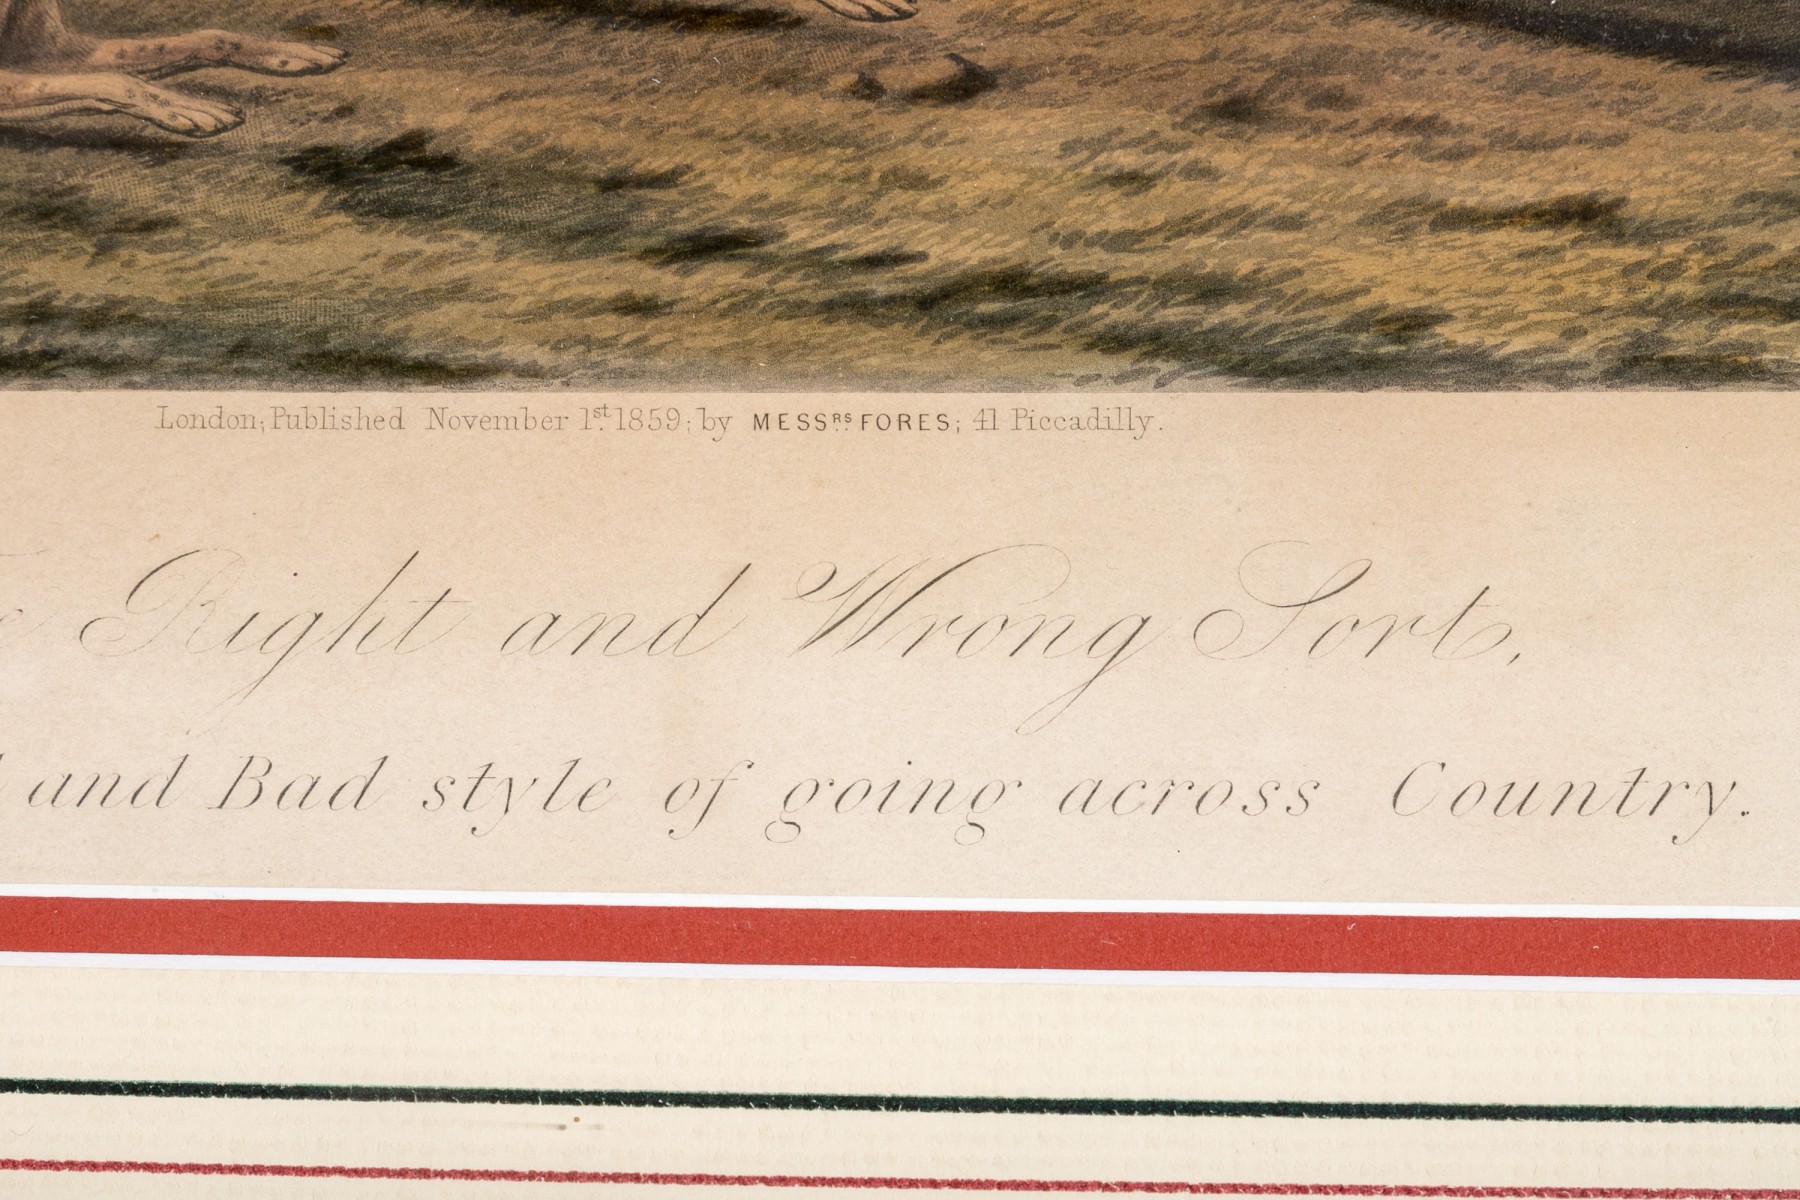 London; Published November 1st. 1859; by MESSRS. FORES; 41 Piccadilly.
Right and Wrong Sort,
and Bad style of going across Country.